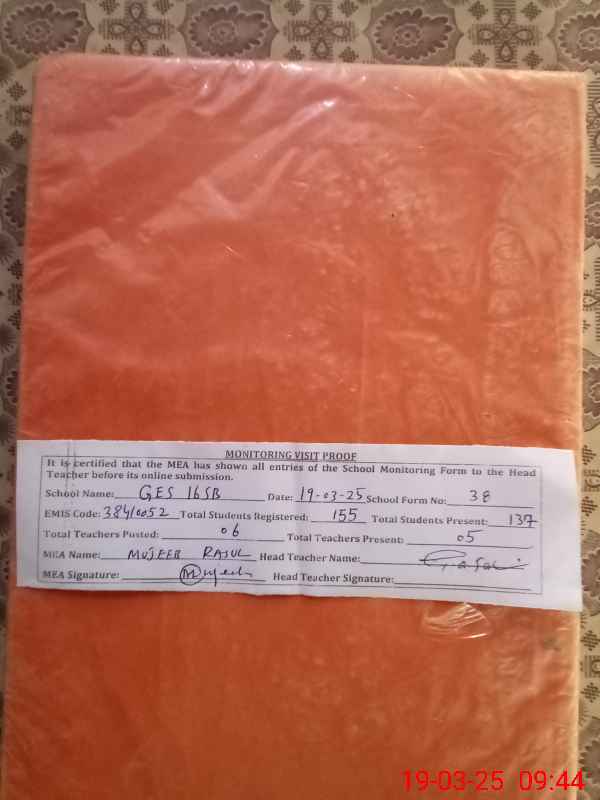 MONITORING VISIT PROOF
It is certified that the MEA has shown all entries of the School Monitoring Form to the Head
Teacher before its online submission.
School Name: GES 16SB Date: 19-03-25 School Form No: 38
EMIS Code: 38410052 Total Students Registered: 155 Total Students Present: 137
Total Teachers Posted: 06 Total Teachers Present: 05
MEA Name: MUJEEB RASUL Head Teacher Name:
MEA Signature: Mujeeb Head Teacher Signature:
19-03-25 09:44